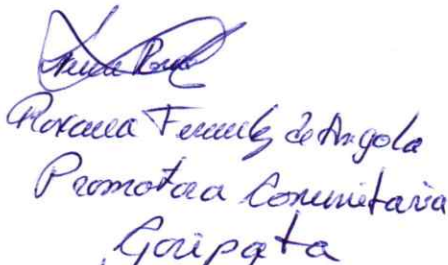 Roxana Fernandez de Angola
Promotora Comunitaria
Coripata